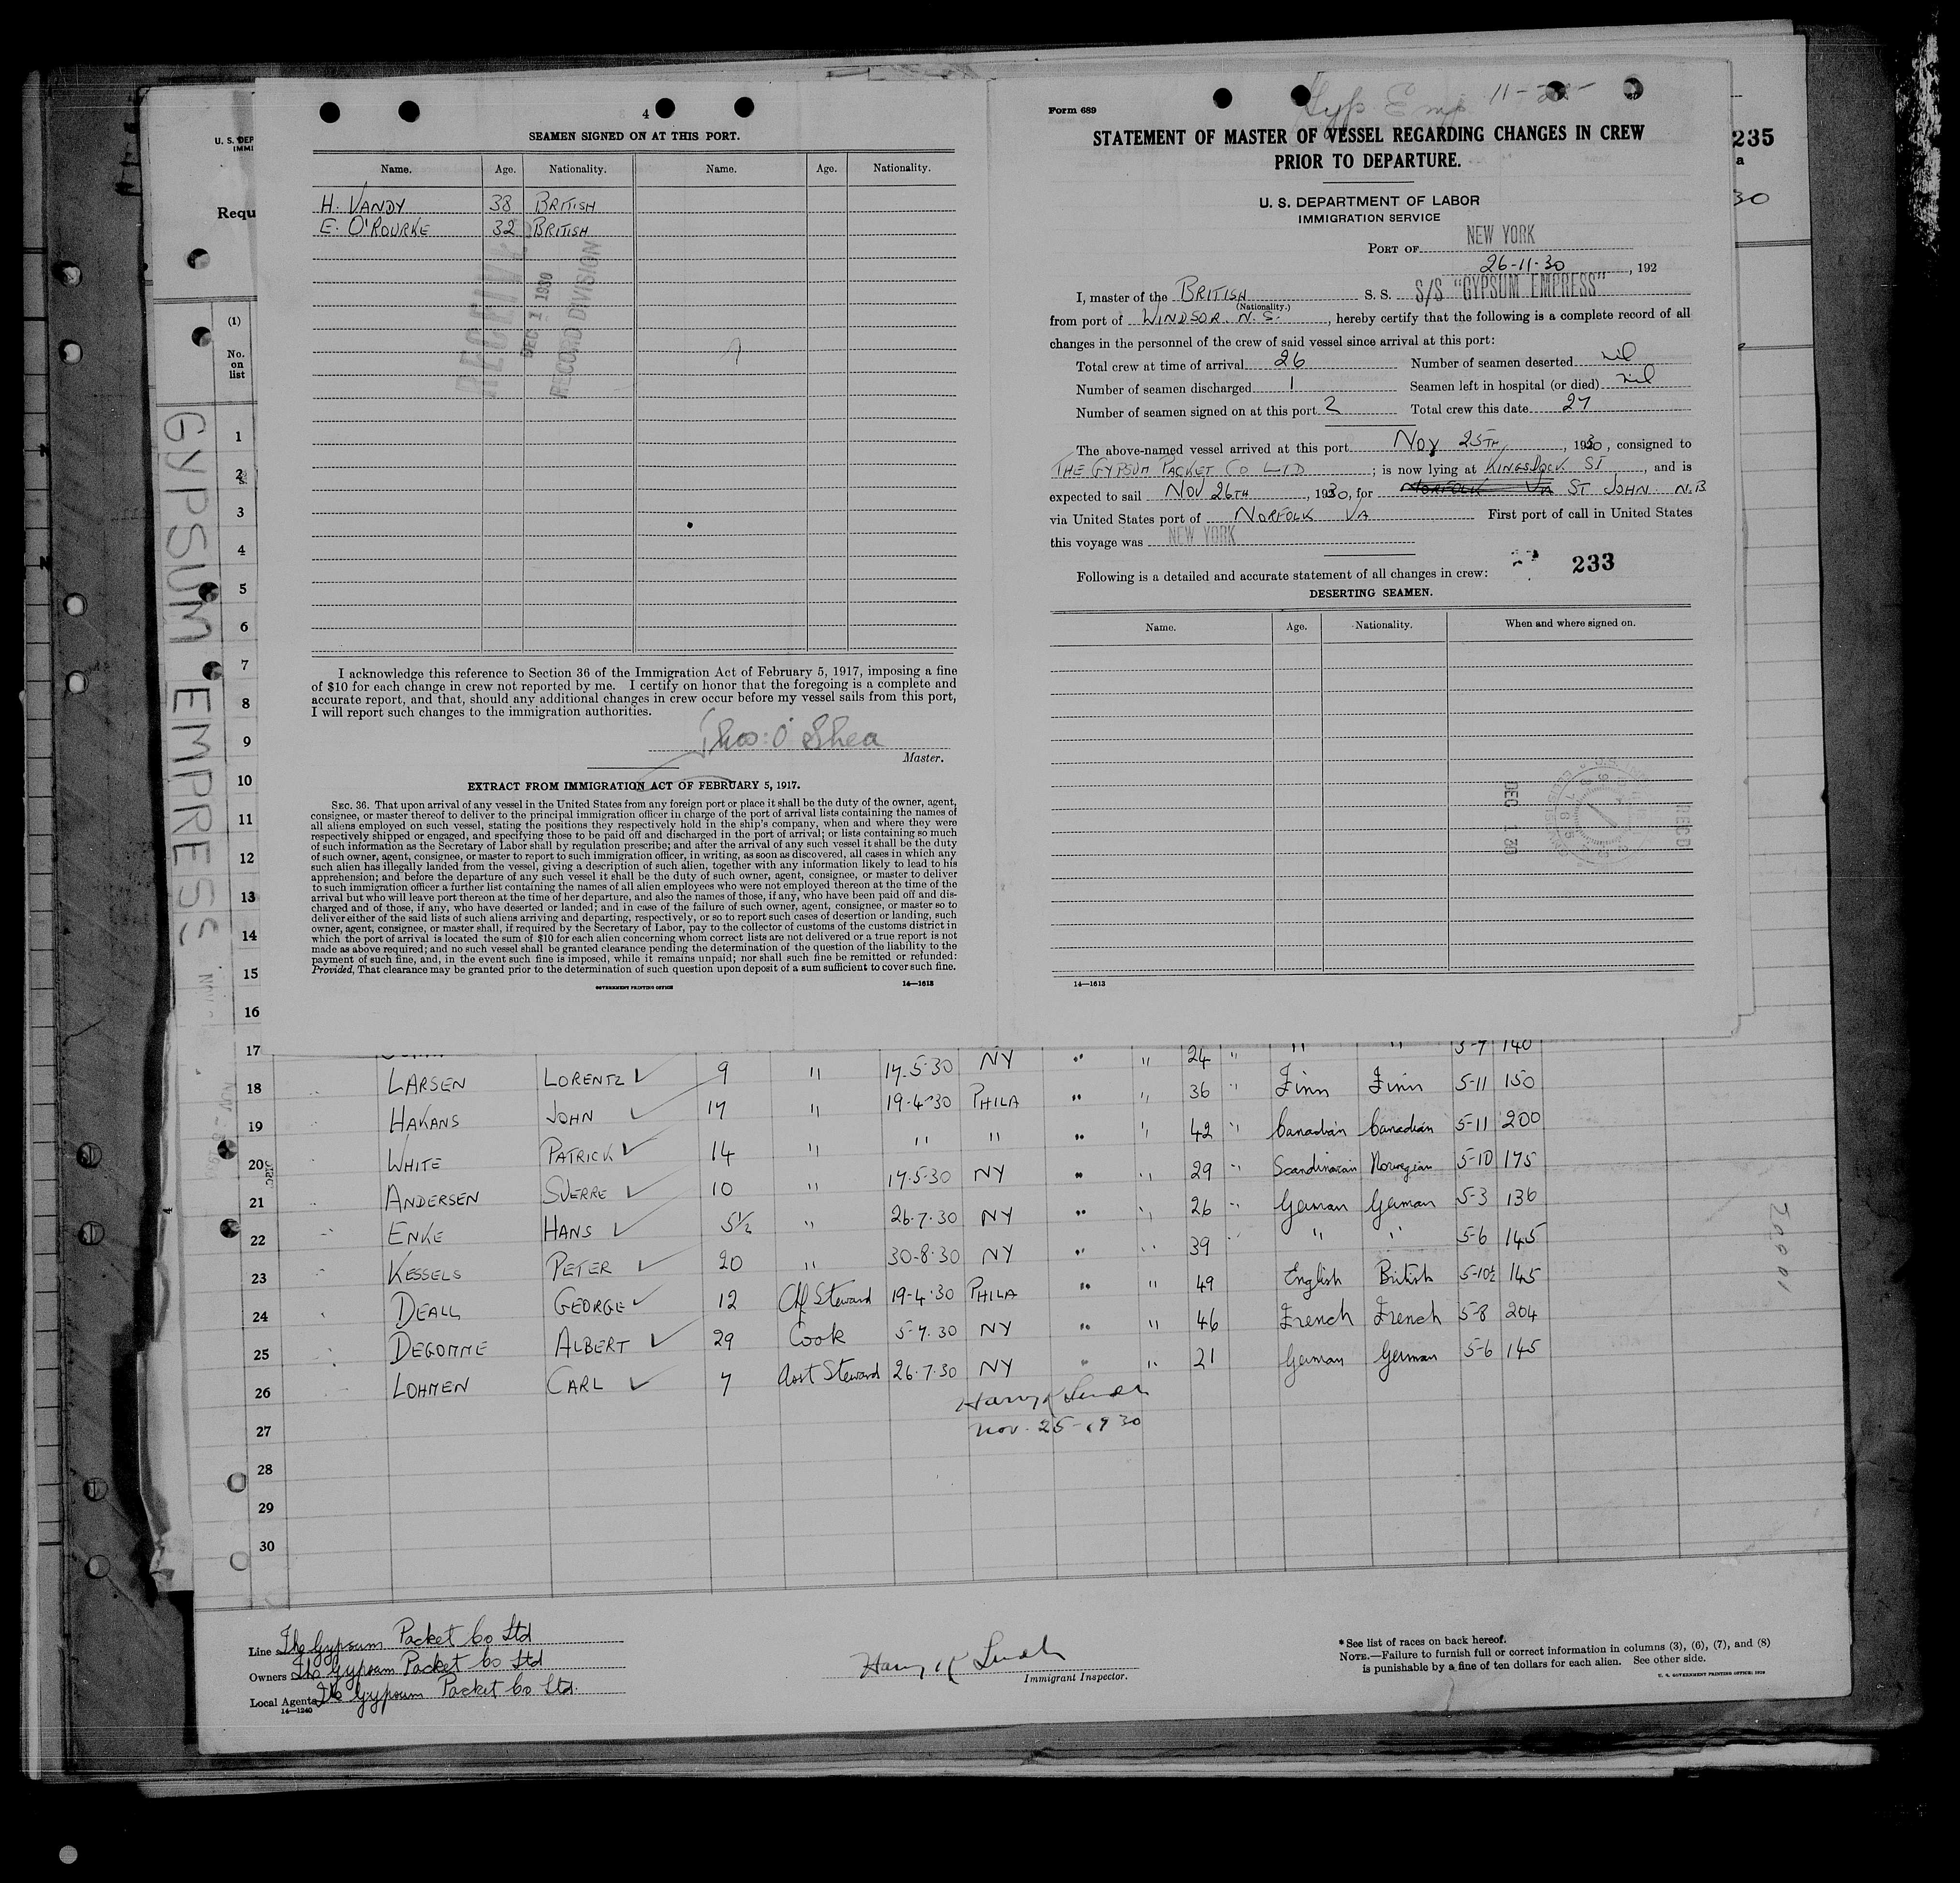 4
SEAMEN SIGNED ON AT THIS PORT.
Name. Age. Nationality. Name. Age. Nationality.
H. VANDY 38 BRITISH
E. O'ROURKE 32 BRITISH
DEC 1 1930
RECORD DIVISION
I acknowledge this reference to Section 36 of the Immigration Act of February 5, 1917, imposing a fine
of $10 for each change in crew not reported by me. I certify on honor that the foregoing is a complete and
accurate report, and that, should any additional changes in crew occur before my vessel sails from this port,
I will report such changes to the immigration authorities.
Thos: O'Shea
Master.
EXTRACT FROM IMMIGRATION ACT OF FEBRUARY 5, 1917.
SEC. 36. That upon arrival of any vessel in the United States from any foreign port or place it shall be the duty of the owner, agent,
consignee, or master thereof to deliver to the principal immigration officer in charge of the port of arrival lists containing the names of
all aliens employed on such vessel, stating the positions they respectively hold in the ship's company, when and where they were
respectively shipped or engaged, and specifying those to be paid off and discharged in the port of arrival; or lists containing so much
of such information as the Secretary of Labor shall by regulation prescribe; and after the arrival of any such vessel it shall be the duty
of such owner, agent, consignee, or master to report to such immigration officer, in writing, as soon as discovered, all cases in which any
such alien has illegally landed from the vessel, giving a description of such alien, together with any information likely to lead to his
apprehension; and before the departure of any such vessel it shall be the duty of such owner, agent, consignee, or master to deliver
to such immigration officer a further list containing the names of all alien employees who were not employed thereon at the time of the
arrival but who will leave port thereon at the time of her departure, and also the names of those, if any, who have been paid off and dis-
charged and of those, if any, who have deserted or landed; and in case of the failure of such owner, agent, consignee, or master so to
deliver either of the said lists of such aliens arriving and departing, respectively, or so to report such cases of desertion or landing, such
owner, agent, consignee, or master shall, if required by the Secretary of Labor, pay to the collector of customs of the customs district in
which the port of arrival is located the sum of $10 for each alien concerning whom correct lists are not delivered or a true report is not
made as above required; and no such vessel shall be granted clearance pending the determination of the question of the liability to the
payment of such fine, and, in the event such fine is imposed, while it remains unpaid; nor shall such fine be remitted or refunded:
Provided, That clearance may be granted prior to the determination of such question upon deposit of a sum sufficient to cover such fine.
GOVERNMENT PRINTING OFFICE 14—1613
Form 689
Gyp. Emp. 11-25-
STATEMENT OF MASTER OF VESSEL REGARDING CHANGES IN CREW
PRIOR TO DEPARTURE.
U. S. DEPARTMENT OF LABOR
IMMIGRATION SERVICE
PORT OF NEW YORK
26-11-30, 192
I, master of the BRITISH S. S. S/S "GYPSUM EMPRESS"
(Nationality.)
from port of WINDSOR. N.S., hereby certify that the following is a complete record of all
changes in the personnel of the crew of said vessel since arrival at this port:
Total crew at time of arrival 26 Number of seamen deserted nil
Number of seamen discharged 1 Seamen left in hospital (or died) nil
Number of seamen signed on at this port 2 Total crew this date 27
The above-named vessel arrived at this port NOV 25TH, 1930, consigned to
THE GYPSUM PACKET CO LTD; is now lying at KINGSDOCK ST, and is
expected to sail NOV 26TH, 1930, for NORFOLK VA ST JOHN N.B
via United States port of NORFOLK VA First port of call in United States
this voyage was NEW YORK
233
Following is a detailed and accurate statement of all changes in crew:
DESERTING SEAMEN.
Name. Age. Nationality. When and where signed on.
DEC 1 30
REC'D
14—1613
235
a
30
U. S. DEP
IMMI
Requ
(1)
No.
on
list
GYPSUM EMPRESS
1
2
3
4
5
6
7
8
9
10
11
12
13
14
15
16
17 24 " " " 5-7 140
18 LARSEN LORENTZ 9 " 17.5.30 NY " " 36 " Finn Finn 5-11 150
19 HAKANS JOHN 17 " 19-4-30 PHILA " " 42 " Canadian Canadian 5-11 200
20 WHITE PATRICK 14 " " " " " 29 " Scandinavian Norwegian 5-10 175
21 ANDERSEN SVERRE 10 " 17.5.30 NY " " 26 " German German 5-3 136
22 ENKE HANS 5½ " 26.7.30 NY " " 39 " " " 5-6 145
23 KESSELS PETER 20 " 30-8-30 NY " " 49 English British 5-10½ 145
24 DEALL GEORGE 12 Chf Steward 19-4-30 PHILA " " 46 French French 5-8 204
25 DEGOMME ALBERT 29 Cook 5-7.30 NY " " 21 German German 5-6 145
26 LOHMEN CARL 7 Asst Steward 26.7.30 NY
27 Nov. 25-1930
28
29
30
Line The Gypsum Packet Co Ltd
Owners The Gypsum Packet Co Ltd
Local Agents The Gypsum Packet Co Ltd.
14—1240
Immigrant Inspector.
* See list of races on back hereof.
NOTE.—Failure to furnish full or correct information in columns (3), (6), (7), and (8)
is punishable by a fine of ten dollars for each alien. See other side.